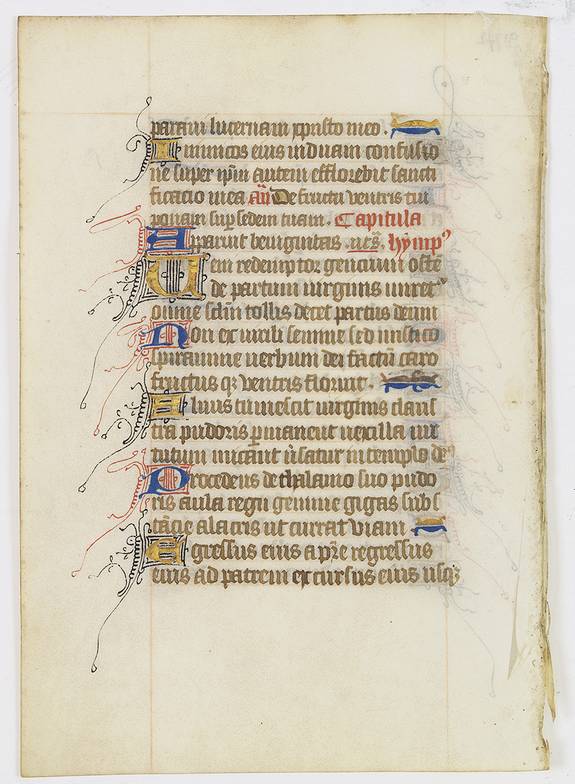 paravi lucernam xpristo meo.
Inimicos eius induam confusio
ne super ipm autem efflorebit sancti
ficatio mea añ De fructu ventris tui
ponam sup sedem tuam. Capitula
Apparuit benignitas .ut s. hymp⁹
Veni redemptor gencium oste
de partum virginis miret²
omne sclm tollis decet partus deum
Non ex virili semine sed mistico
spiramine verbum dei factū caro
fructus q; ventris floruit.
Alvus tumescit virginis claus
tra pudoris pmanent vexilla vir
tutum micant ūsatur in templo de⁹
Procedens de thalamo suo pudo
ris aula regia gemine gigas subs
tācie alacris ut currat viam
Egressus eius a pre regressus
eius ad patrem excursus eius usq;